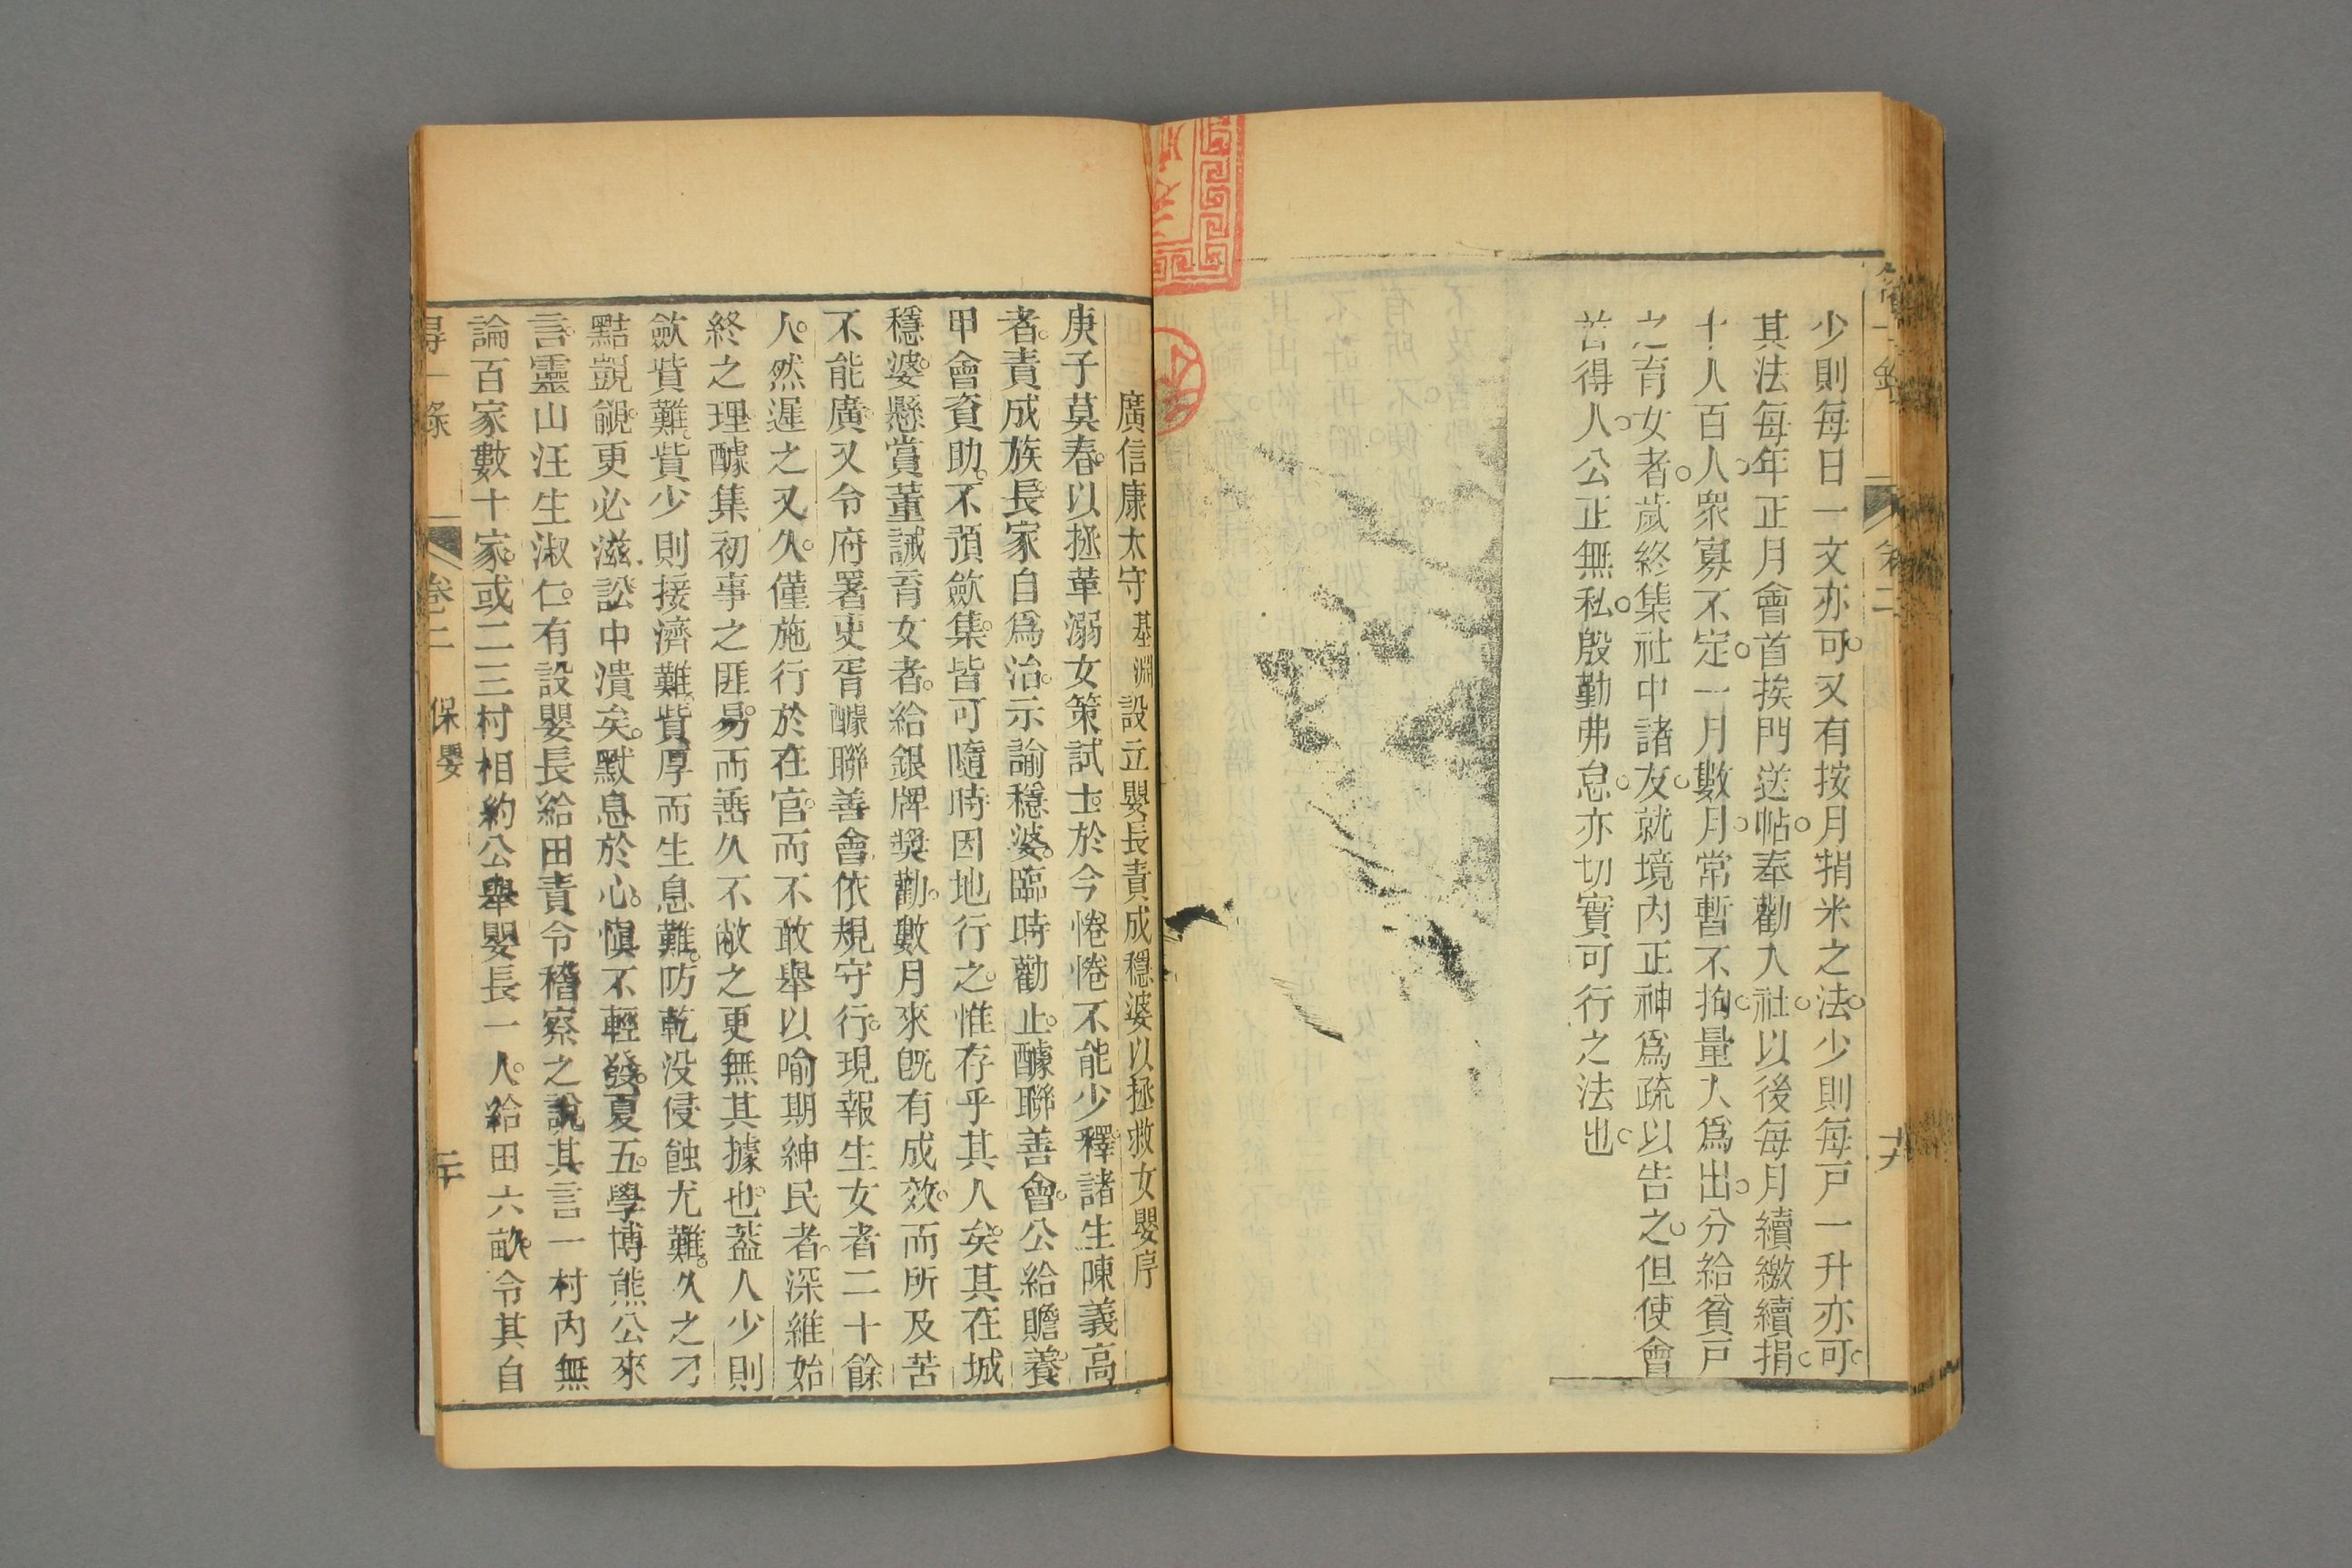 少則每日一文亦可。又有按月捐米之法。少則每戸一升亦可。
其法每年正月會首挨門送帖。奉勸入社。以後每月續繳續捐。
十人百人。衆寡不定。一月數月。常暫不拘。量人爲出。分給貧戸
之育女者。歲終集社中諸友。就境内正神爲疏以告之。但使會
首得人。公正無私。殷勤弗怠。亦切實可行之法也。
廣信康太守基淵設立嬰長責成穩婆以拯救女嬰序
庚子莫春。以拯革溺女策試士。於今惓惓不能少釋。諸生陳義高
者。責成族長家自爲治。示諭穩婆。臨時勸止。醵聯善會。公給贍養。
甲會資助。不預歛集。皆可隨時因地行之。惟存乎其人矣。其在城
穩婆。懸賞董誡。育女者。給銀牌獎勸。數月來旣有成效。而所及苦
不能廣。又令府署吏胥醵聯善會。依規守行。現報生女者二十餘
人。然遲之又久。僅施行於在官。而不敢舉以喻期紳民者。深維始
終之理。醵集初事之匪易。而垂久不敝之更無其據也。葢人少則
歛貲難。貲少則接濟難。貲厚而生息難。防乾没侵蝕尤難。久之刁
黠覬覦。更必滋訟中潰矣。默息於心。愼不輕發。夏五。學博熊公來
言。靈山汪生淑仁。有設嬰長給田責令稽察之說。其言一村内無
論百家數十家。或二三村相約。公舉嬰長一人。給田六畝。令其自
尋一錄
卷二
保嬰
二十